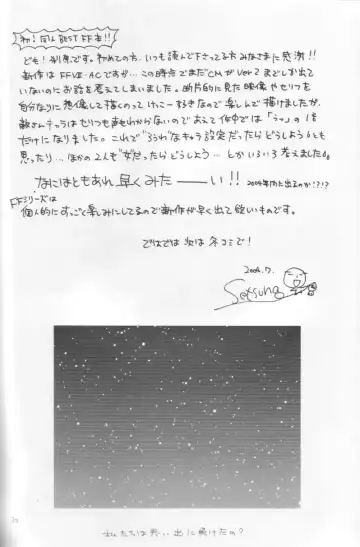 わ!同人BEST FF本!!
ども!刹那です。初めての方、いつも読んで下さってる方みなさまに感謝!!
新作は FFⅦ・ACですが…この時点でまだCMが Ver2 までしか出て
いないのにお話を考えてしまいました。断片的に見た映像やセリフを
自分なりに想像して描くのってけっこーすきなので楽しんで描けましたが、
敵さんチックはセリフも声もわからないのであえて作中では「うっ」の
だけになりました。これで な設定だったらどうしようとも
思ったり…ほかの2人も"女"だったらどうしよう…とかいろいろ考えました。
なにはともあれ早くみたーーい!! 2004年内に出るのか?!?
FFシリーズは
個人的にすっごく楽しみにしてるので新作が早く出て欲しいものです。
ではでは次は冬コミで!
2004.7.
Setsuna
私たちは 思い出に負けたの?